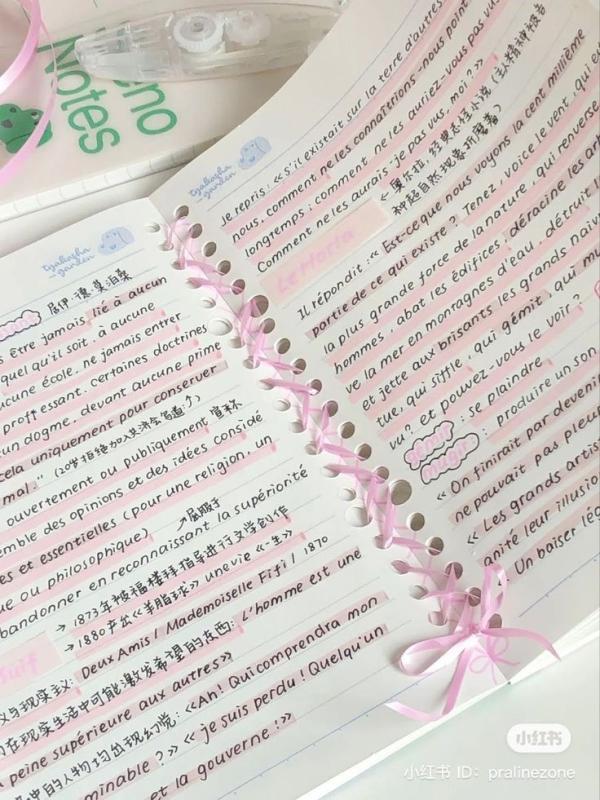 Notes
tzakasha
garden
居伊·德·莫泊桑
s être jamais lié à aucun
quel qu'il soit, à aucune
cune école, ne jamais entrer
professant certaines doctrines
un dogme, devant aucune prime
cela uniquement pour conserver
mal."
ouvertement ou publiquement 宣称
emble des opinions et des idées considé
es et essentielles (pour une religion, un
ue ou philosophique)
→屈服于
abandonner en reconnaissant la supériorité
→ 1873年被福楼拜指导进行文学创作
→ 1880产出《羊脂球》 une vie 《一生》
Suif
Deux Amis / Mademoiselle Fifi / 1870
义与现实主义:
在现实生活中可能激发希望的东西: L'homme est une
peine supérieure aux autres»
中的人物均出现幻觉: «Ah! Qui comprendra mon
minable ?» « je suis perdu ! Quelqu'un
et la gouverne !»
tzakasha
garden
Je repris: «S'il existait sur la terre d'autres
nous, comment ne les connaîtrions-nous point
longtemps; comment ne les auriez-vous pas vus
Comment ne les aurais-je pas vus, moi ?»
Le Horla
Il répondit: « Est-ce que nous voyons la cent millième
partie de ce qui existe ? Tenez, voici le vent, qui est
la plus grande force de la nature, qui renverse
hommes, abat les édifices, déracine les arb
ve la mer en montagnes d'eau, détruit l
et jette aux brisants les grands navir
tue, qui siffle, qui gémit, qui mu
vu? et pouvez-vous le voir ?
gémir : se plaindre
mugir : produire un son
« On finirait par deveni
ne pouvait pas pleur
« Les grands artis
anité leur illusio
Un baiser lég
小红书
小红书 ID: pralinezone